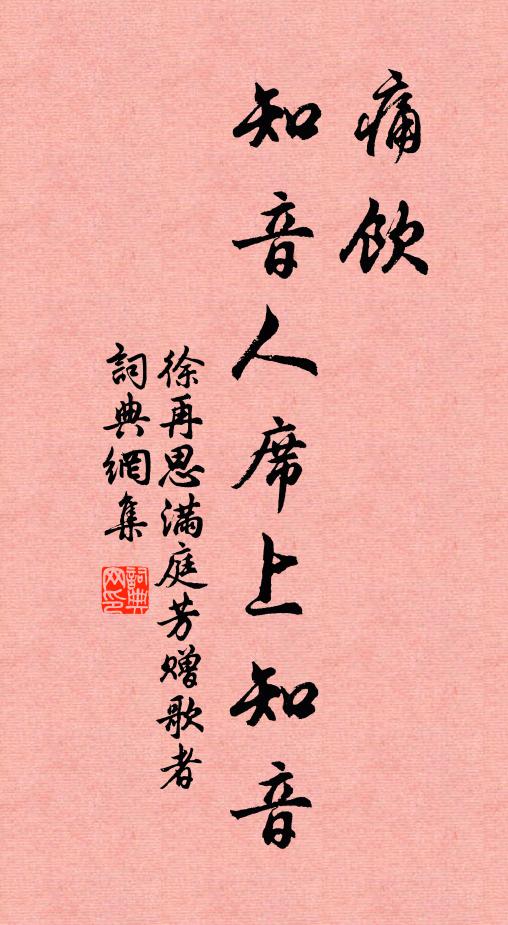 痛飲
知音人席上知音
徐再思滿庭芳贈歌者
詞典網集
詞典网印